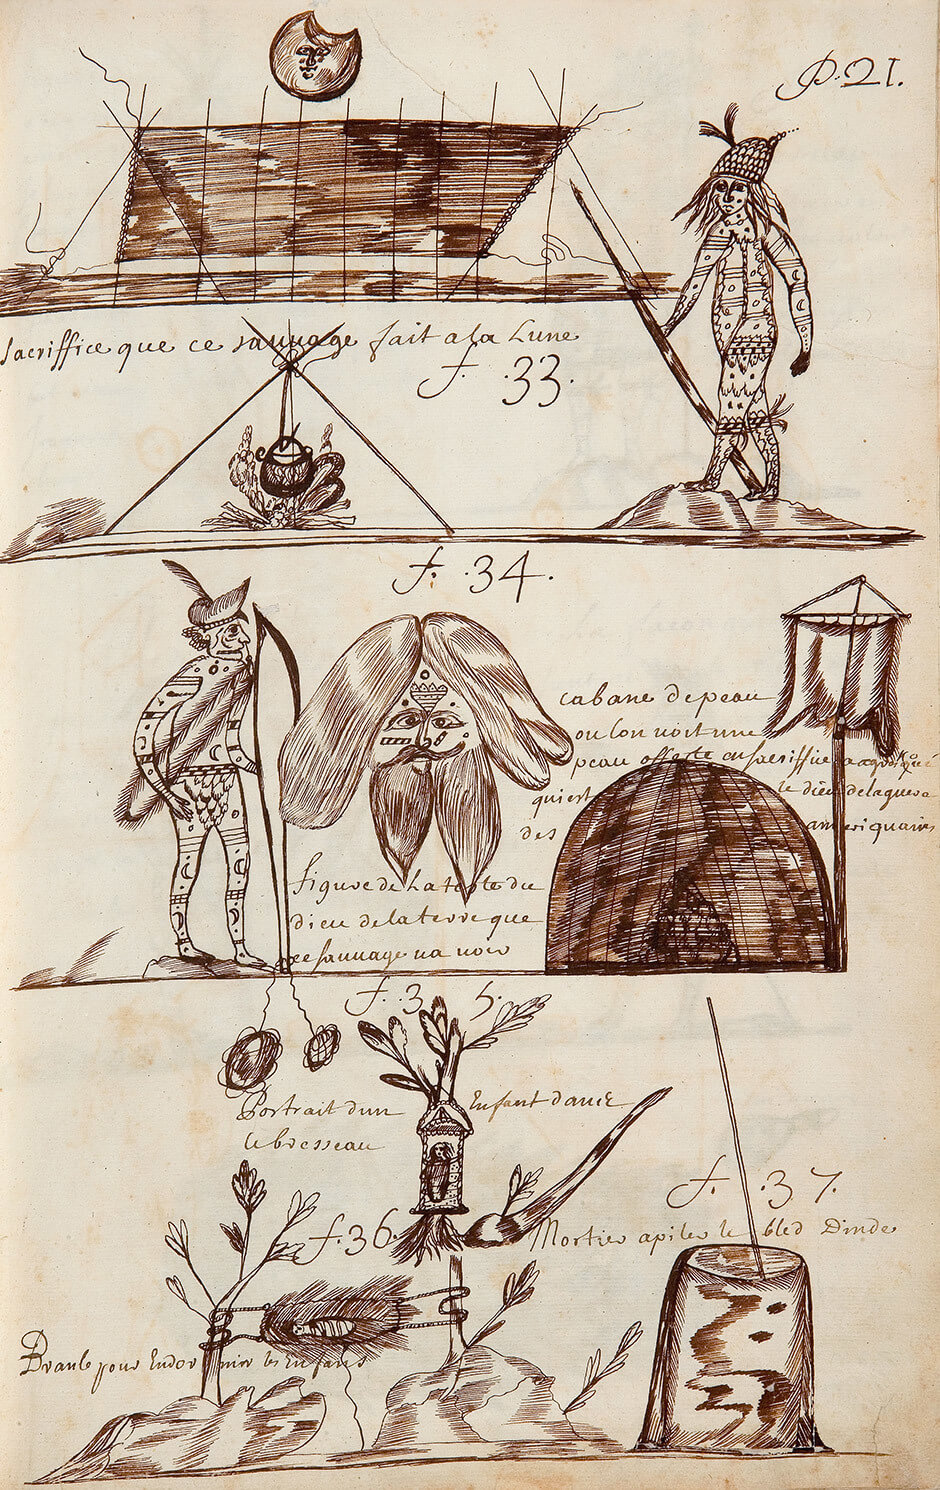 P. 21.
Sacriffice que ce sauvage fait a la Lune
f. .33.
f. .34.
cabane de peau
ou lon voit une
peau offerte en sacriffice a
qui est le dieu de la guere
des ameriquains
figure de la teste du
dieu de la terre que
ce sauvage va voir
f. .35.
Portrait dun Enfant dans
le bresseau
f. .36.
f. .37.
Mortier a piler le bled Dinde
Branle pour Endormir les Enfans